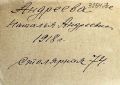 Андреева
Наталья Андреевна
1918 г.
Столярная 74